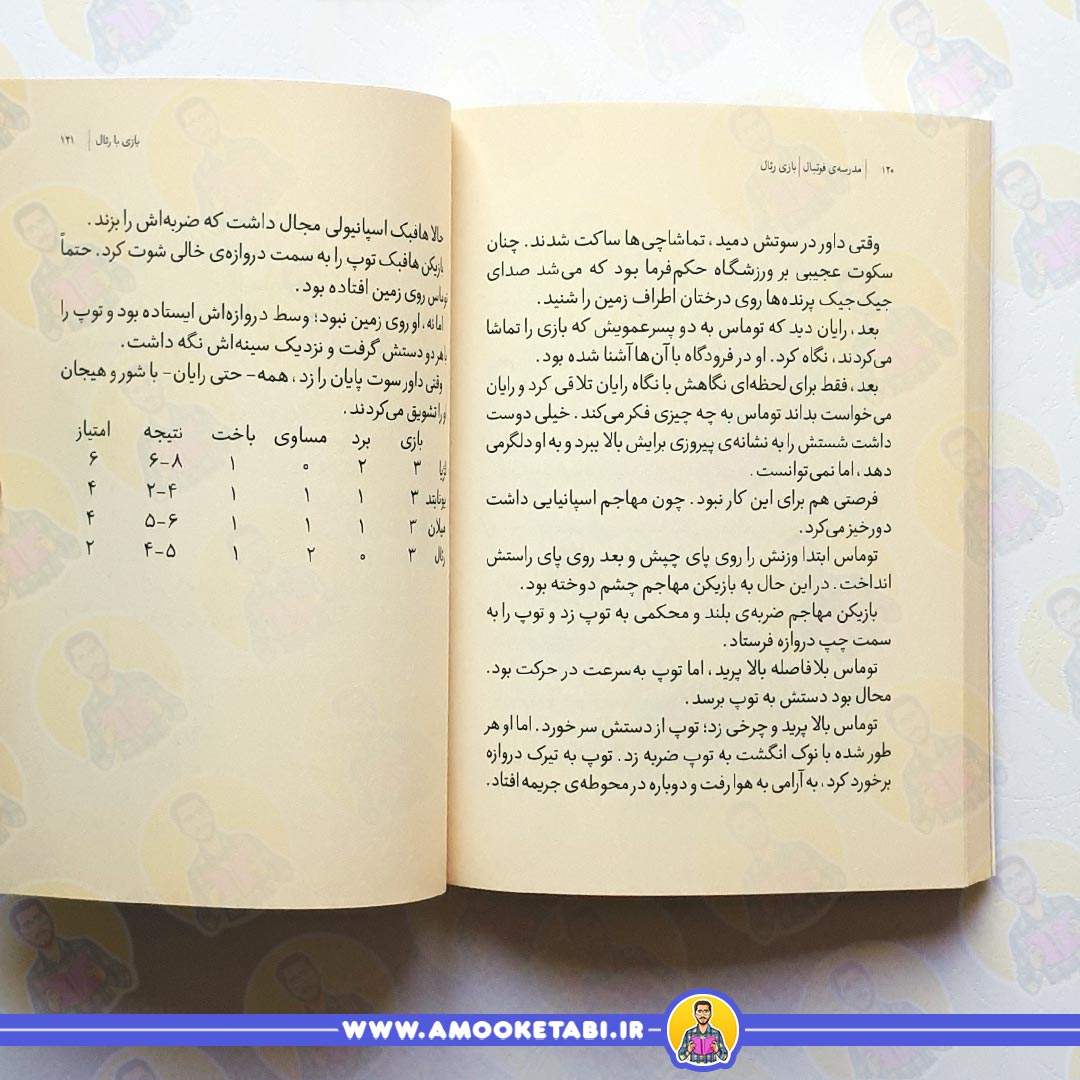 ۱۲۰ | مدرسه‌ی فوتبال | بازی رئال
وقتی داور در سوتش دمید، تماشاچی‌ها ساکت شدند. چنان
سکوت عجیبی بر ورزشگاه حکم‌فرما بود که می‌شد صدای
جیک‌جیک پرنده‌ها روی درختان اطراف زمین را شنید.
بعد، رایان دید که توماس به دو پسرعمویش که بازی را تماشا
می‌کردند، نگاه کرد. او در فرودگاه با آن‌ها آشنا شده بود.
بعد، فقط برای لحظه‌ای نگاهش با نگاه رایان تلاقی کرد و رایان
می‌خواست بداند توماس به چه چیزی فکر می‌کند. خیلی دوست
داشت شستش را به نشانه‌ی پیروزی برایش بالا ببرد و به او دلگرمی
دهد، اما نمی‌توانست.
فرصتی هم برای این کار نبود. چون مهاجم اسپانیایی داشت
دورخیز می‌کرد.
توماس ابتدا وزنش را روی پای چپش و بعد روی پای راستش
انداخت. در این حال به بازیکن مهاجم چشم دوخته بود.
بازیکن مهاجم ضربه‌ی بلند و محکمی به توپ زد و توپ را به
سمت چپ دروازه فرستاد.
توماس بلافاصله بالا پرید، اما توپ به‌سرعت در حرکت بود.
محال بود دستش به توپ برسد.
توماس بالا پرید و چرخی زد؛ توپ از دستش سر خورد. اما او هر
طور شده با نوک انگشت به توپ ضربه زد. توپ به تیرک دروازه
برخورد کرد، به آرامی به هوا رفت و دوباره در محوطه‌ی جریمه افتاد.
بازی با رئال | ۱۲۱
حالا هافبک اسپانیولی مجال داشت که ضربه‌اش را بزند.
بازیکن هافبک توپ را به سمت دروازه‌ی خالی شوت کرد. حتماً
توماس روی زمین افتاده بود.
اما نه، او روی زمین نبود؛ وسط دروازه‌اش ایستاده بود و توپ را
با هر دو دستش گرفت و نزدیک سینه‌اش نگه داشت.
وقتی داور سوت پایان را زد، همه- حتی رایان- با شور و هیجان
او را تشویق می‌کردند.
بازی برد مساوی باخت نتیجه امتیاز
۳ ۲ ۰ ۱ ۶-۸ ۶
یونایتد ۳ ۱ ۱ ۱ ۲-۴ ۴
میلان ۳ ۱ ۱ ۱ ۵-۶ ۴
رئال ۳ ۰ ۲ ۱ ۴-۵ ۲
WWW.AMOOKETABI.IR